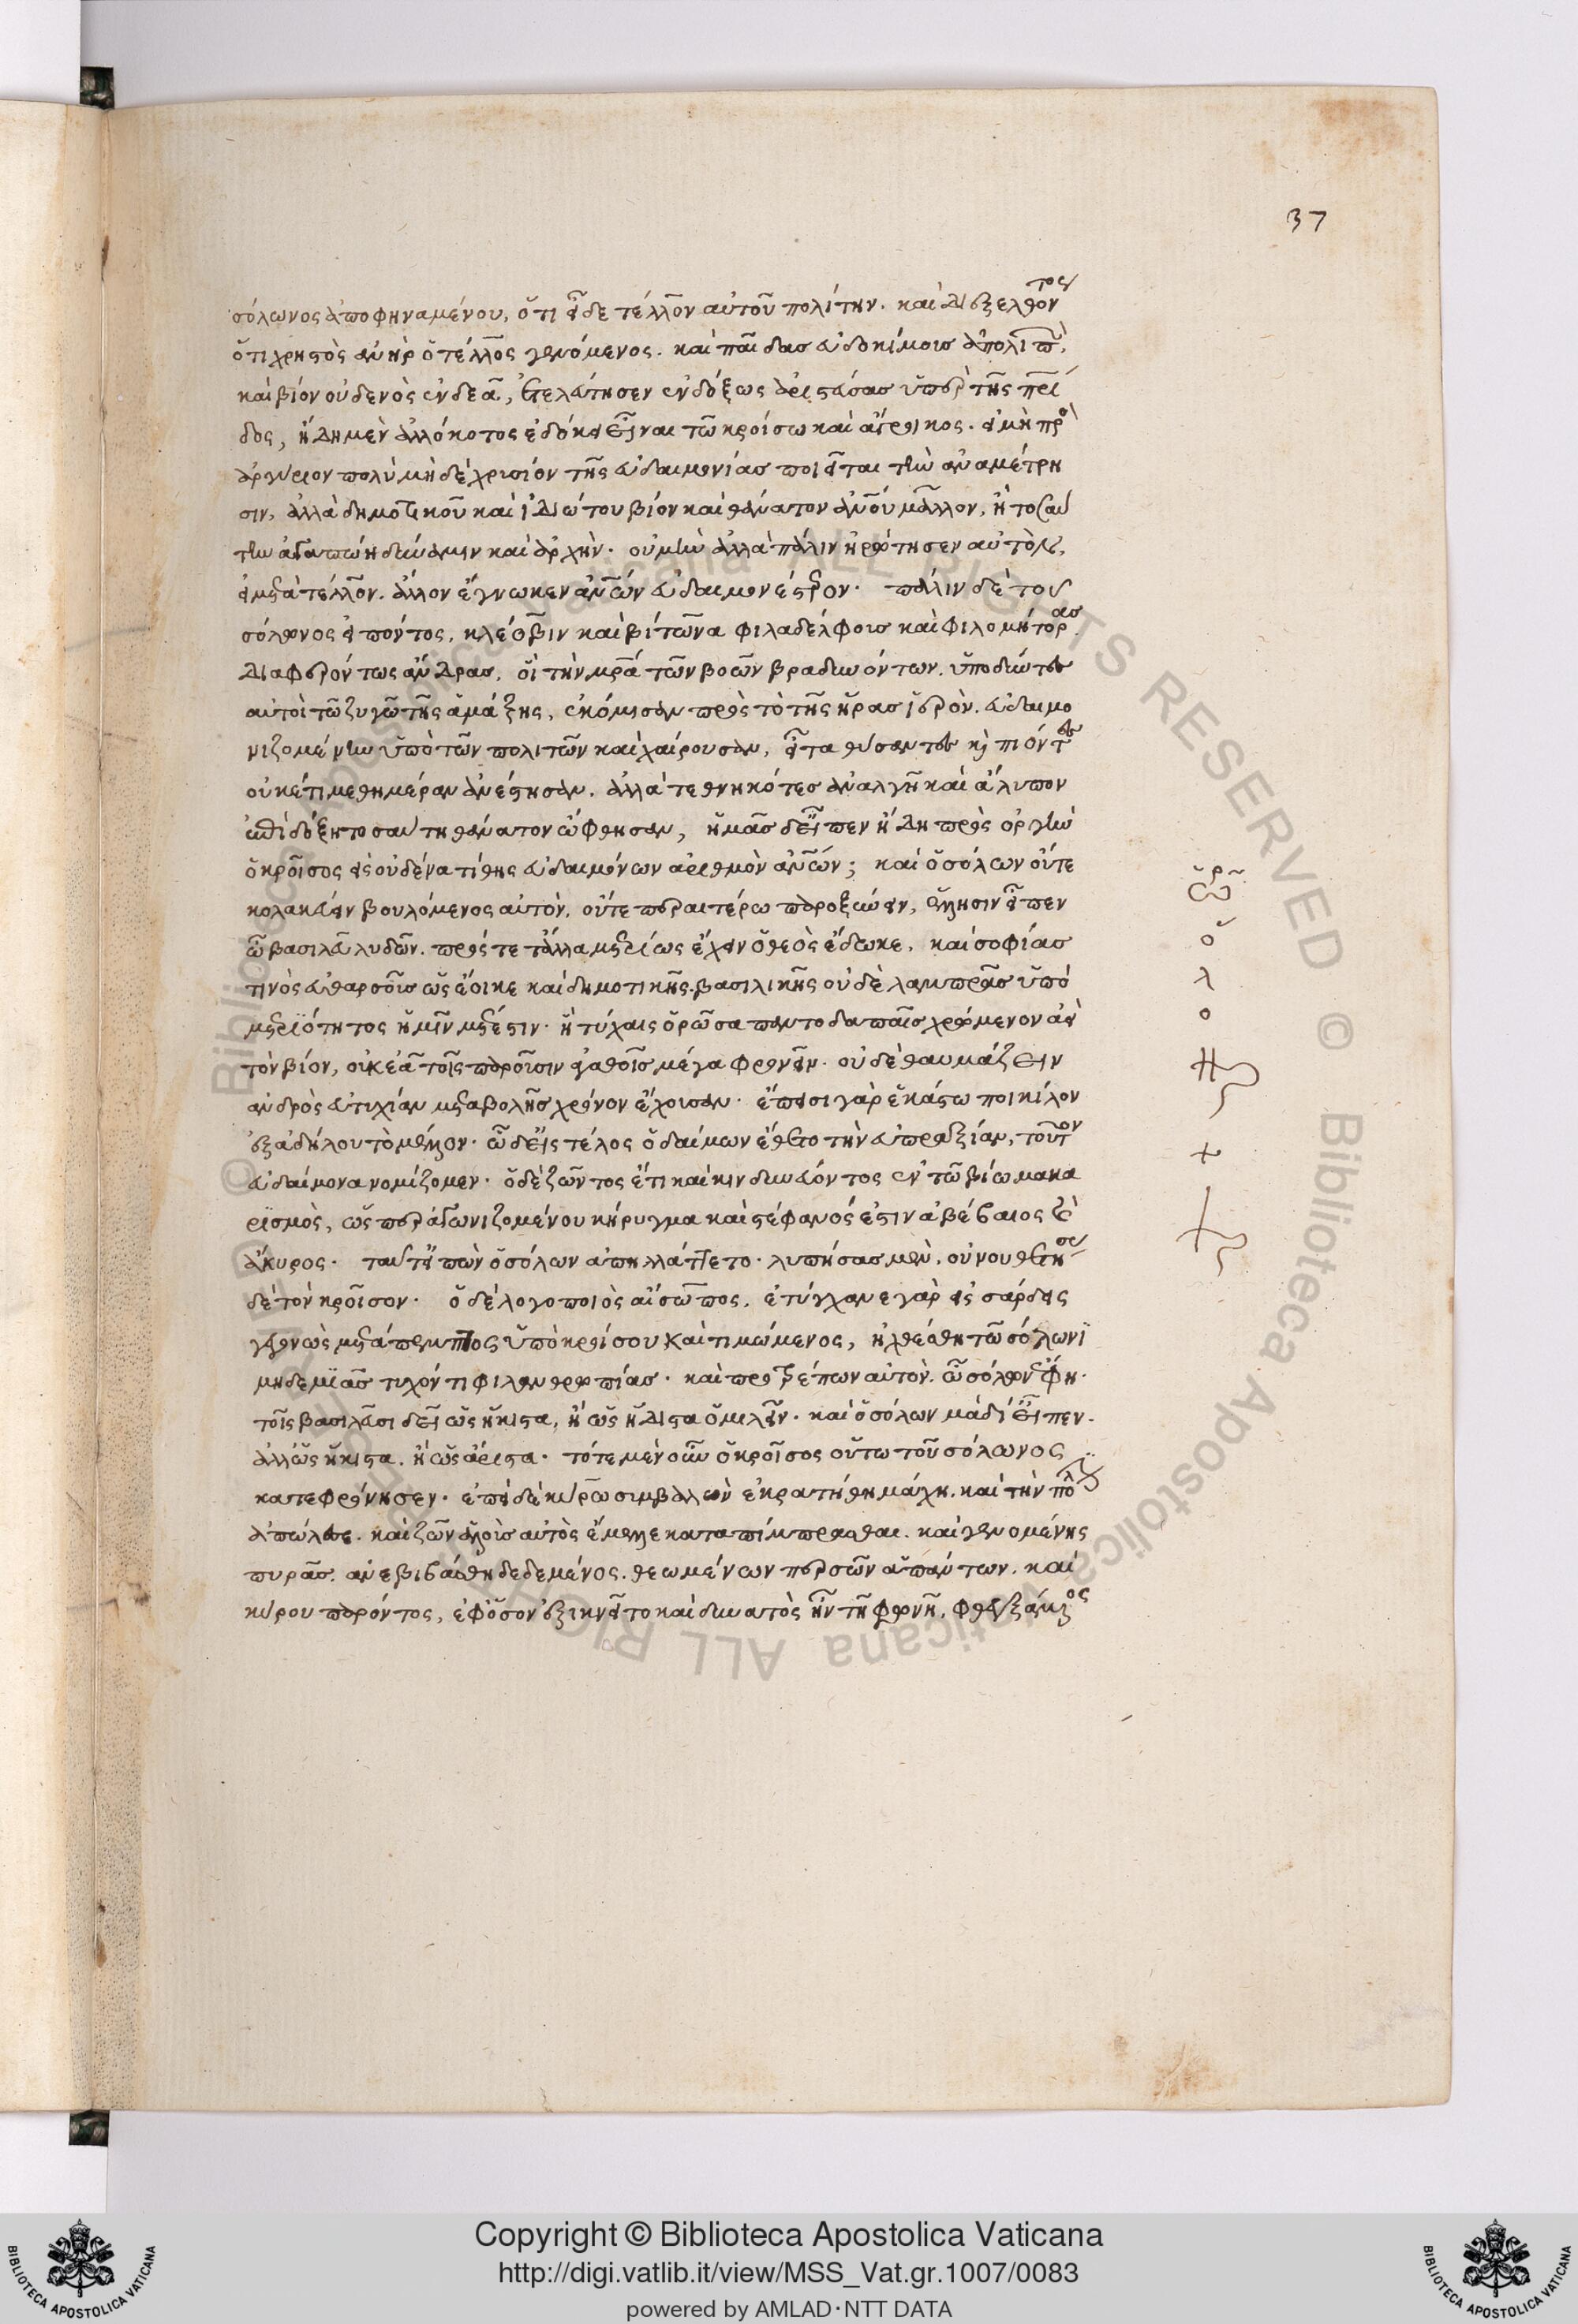 37
σόλωνος ἀποφηναμένου, ὅτι εἶδε τέλλον αὐτοῦ πολίτην. καὶ διεξελθόντος
ὅτι χρηστὸς ἀνὴρ ὁ τέλλος γενόμενος. καὶ παῖδας εὐδοκίμους ἀπολιπὼν,
καὶ βίον οὐδενὸς ἐνδεᾶ, ἐτελεύτησεν ἐνδόξως ἀριστεύσας ὑπὲρ τῆς πατρί
δος, ἤδη μὲν ἀλλόκοτος ἐδόκει εἶναι τῶ κροίσω καὶ ἄγροικος. εἰ μὴ πρὸς
ἀργύριον πολὺ μὴ δὲ χρυσίον τῆς εὐδαιμονίας ποιεῖται τὴν ἀναμέτρη
σιν, ἀλλὰ δημοτικοῦ καὶ ἰδιώτου βίον καὶ θάνατον ἀνθρώπου μᾶλλον, ἢ τοσαύ
την ἀγαπώη δύναμιν καὶ ἀρχὴν. οὐ μὴν ἀλλὰ πάλιν ἠρώτησεν αὐτὸν,
εἰ μετὰ τέλλον. ἄλλον ἔγνωκεν ἀνθρώπων εὐδαιμονέστερον. πάλιν δὲ τοῦ
σόλωνος εἰπόντος, κλέοβιν καὶ βίτωνα φιλαδέλφους καὶ φιλομήτορας
διαφερόντως ἄνδρας, οἳ τὴν μητέρα τῶν βοῶν βραδυνόντων. ὑποδύντες
αὐτοὶ τῶ ζυγῶ τῆς ἁμάξης, ἐκόμισαν πρὸς τὸ τῆς ἥρας ἱερὸν. εὐδαιμο
νιζομένην ὑπὸ τῶν πολιτῶν καὶ χαίρουσαν, εἶτα θύσαντες καὶ πιόντες
οὐκέτι μεθημέραν ἀνέστησαν. ἀλλὰ τεθνηκότες ἀναλγῆ καὶ ἄλυπον
ἐπὶ δόξη τοσαύτη θάνατον ὤφθησαν, ἡμᾶς δὲ εἶπεν ἤδη πρὸς ὀργὴν
ὁ κροῖσος εἰς οὐδένα τίθης εὐδαιμόνων ἀριθμὸν ἀνθρώπων; καὶ ὁ σόλων οὔτε
κολακεύειν βουλόμενος αὐτὸν. οὔτε περαιτέρω παροξύνειν, ἕλλησιν εἶπεν
ὦ βασιλεῦ λυδῶν. πρός τε τἄλλα μετρίως ἔχειν ὁ θεὸς ἔδωκε, καὶ σοφίας
τινὸς εὐθαρσοῦς ὡς ἔοικε καὶ δημοτικῆς. βασιλικῆς οὐδὲ λαμπρᾶς ὑπὸ
μετριότητος ἡμῖν μέτεστιν. ἣ τύχαις ὁρῶσα παντοδαπαῖς χρώμενον ἀεὶ
τὸν βίον, οὐκ ἐᾶ τοῖς παροῦσιν ἀγαθοῖς μέγα φρονεῖν. οὐδὲ θαυμάζειν
ἀνδρὸς εὐτυχίαν μεταβολῆς χρόνον ἔχουσαν. ἔπεισι γὰρ ἑκάστω ποικίλον
ἐξ ἀδήλου τὸ μέλλον. ὧ δ' εἰς τέλος ὁ δαίμων ἔθετο τὴν εὐπραξίαν, τοῦτον
εὐδαίμονα νομίζομεν. ὁ δὲ ζῶντος ἔτι καὶ κινδυνεύοντος ἐν τῶ βίω μακα
ρισμὸς, ὥσπερ ἀγωνιζομένου κήρυγμα καὶ στέφανός ἐστιν ἀβέβαιος καὶ
ἄκυρος. ταῦτ' εἰπὼν ὁ σόλων ἀπηλλάττετο. λυπήσας μὲν, οὐ νουθετήσας
δὲ τὸν κροῖσον. ὁ δὲ λογοποιὸς αἴσωπος, ἐτύγχανε γὰρ εἰς σάρδεις
γεγονὼς μετάπεμπτος ὑπὸ κροίσου καὶ τιμώμενος, ἠχθέσθη τῶ σόλωνι
μηδεμιᾶς τυχόντι φιλανθρωπίας. καὶ προτρέπων αὐτὸν. ὦ σόλων ἔφη.
τοῖς βασιλεῦσι δεῖ ὡς ἥκιστα, ἢ ὡς ἥδιστα ὁμιλεῖν. καὶ ὁ σόλων μὰ δί' εἶπεν.
ἀλλ' ὡς ἥκιστα. ἢ ὡς ἄριστα. τότε μὲν οὖν ὁ κροῖσος οὕτω τοῦ σόλωνος
κατεφρόνησεν. ἐπεὶ δὲ κύρω συμβαλὼν ἐκρατήθη μάχη. καὶ τὴν πόλιν
ἀπώλεσε. καὶ ζῶν ἁλοὺς αὐτὸς ἔμελλε καταπίμπρασθαι. καὶ γενομένης
πυρᾶς. ἀνεβιβάσθη δεδεμένος. θεωμένων περσῶν ἁπάντων. καὶ
κύρου παρόντος, ἐφ' ὅσον ἐξικνεῖτο καὶ δυνατὸς ἦν τῆ φωνῆ, φθεγξάμενος
Copyright © Biblioteca Apostolica Vaticana
http://digi.vatlib.it/view/MSS_Vat.gr.1007/0083
powered by AMLAD·NTT DATA